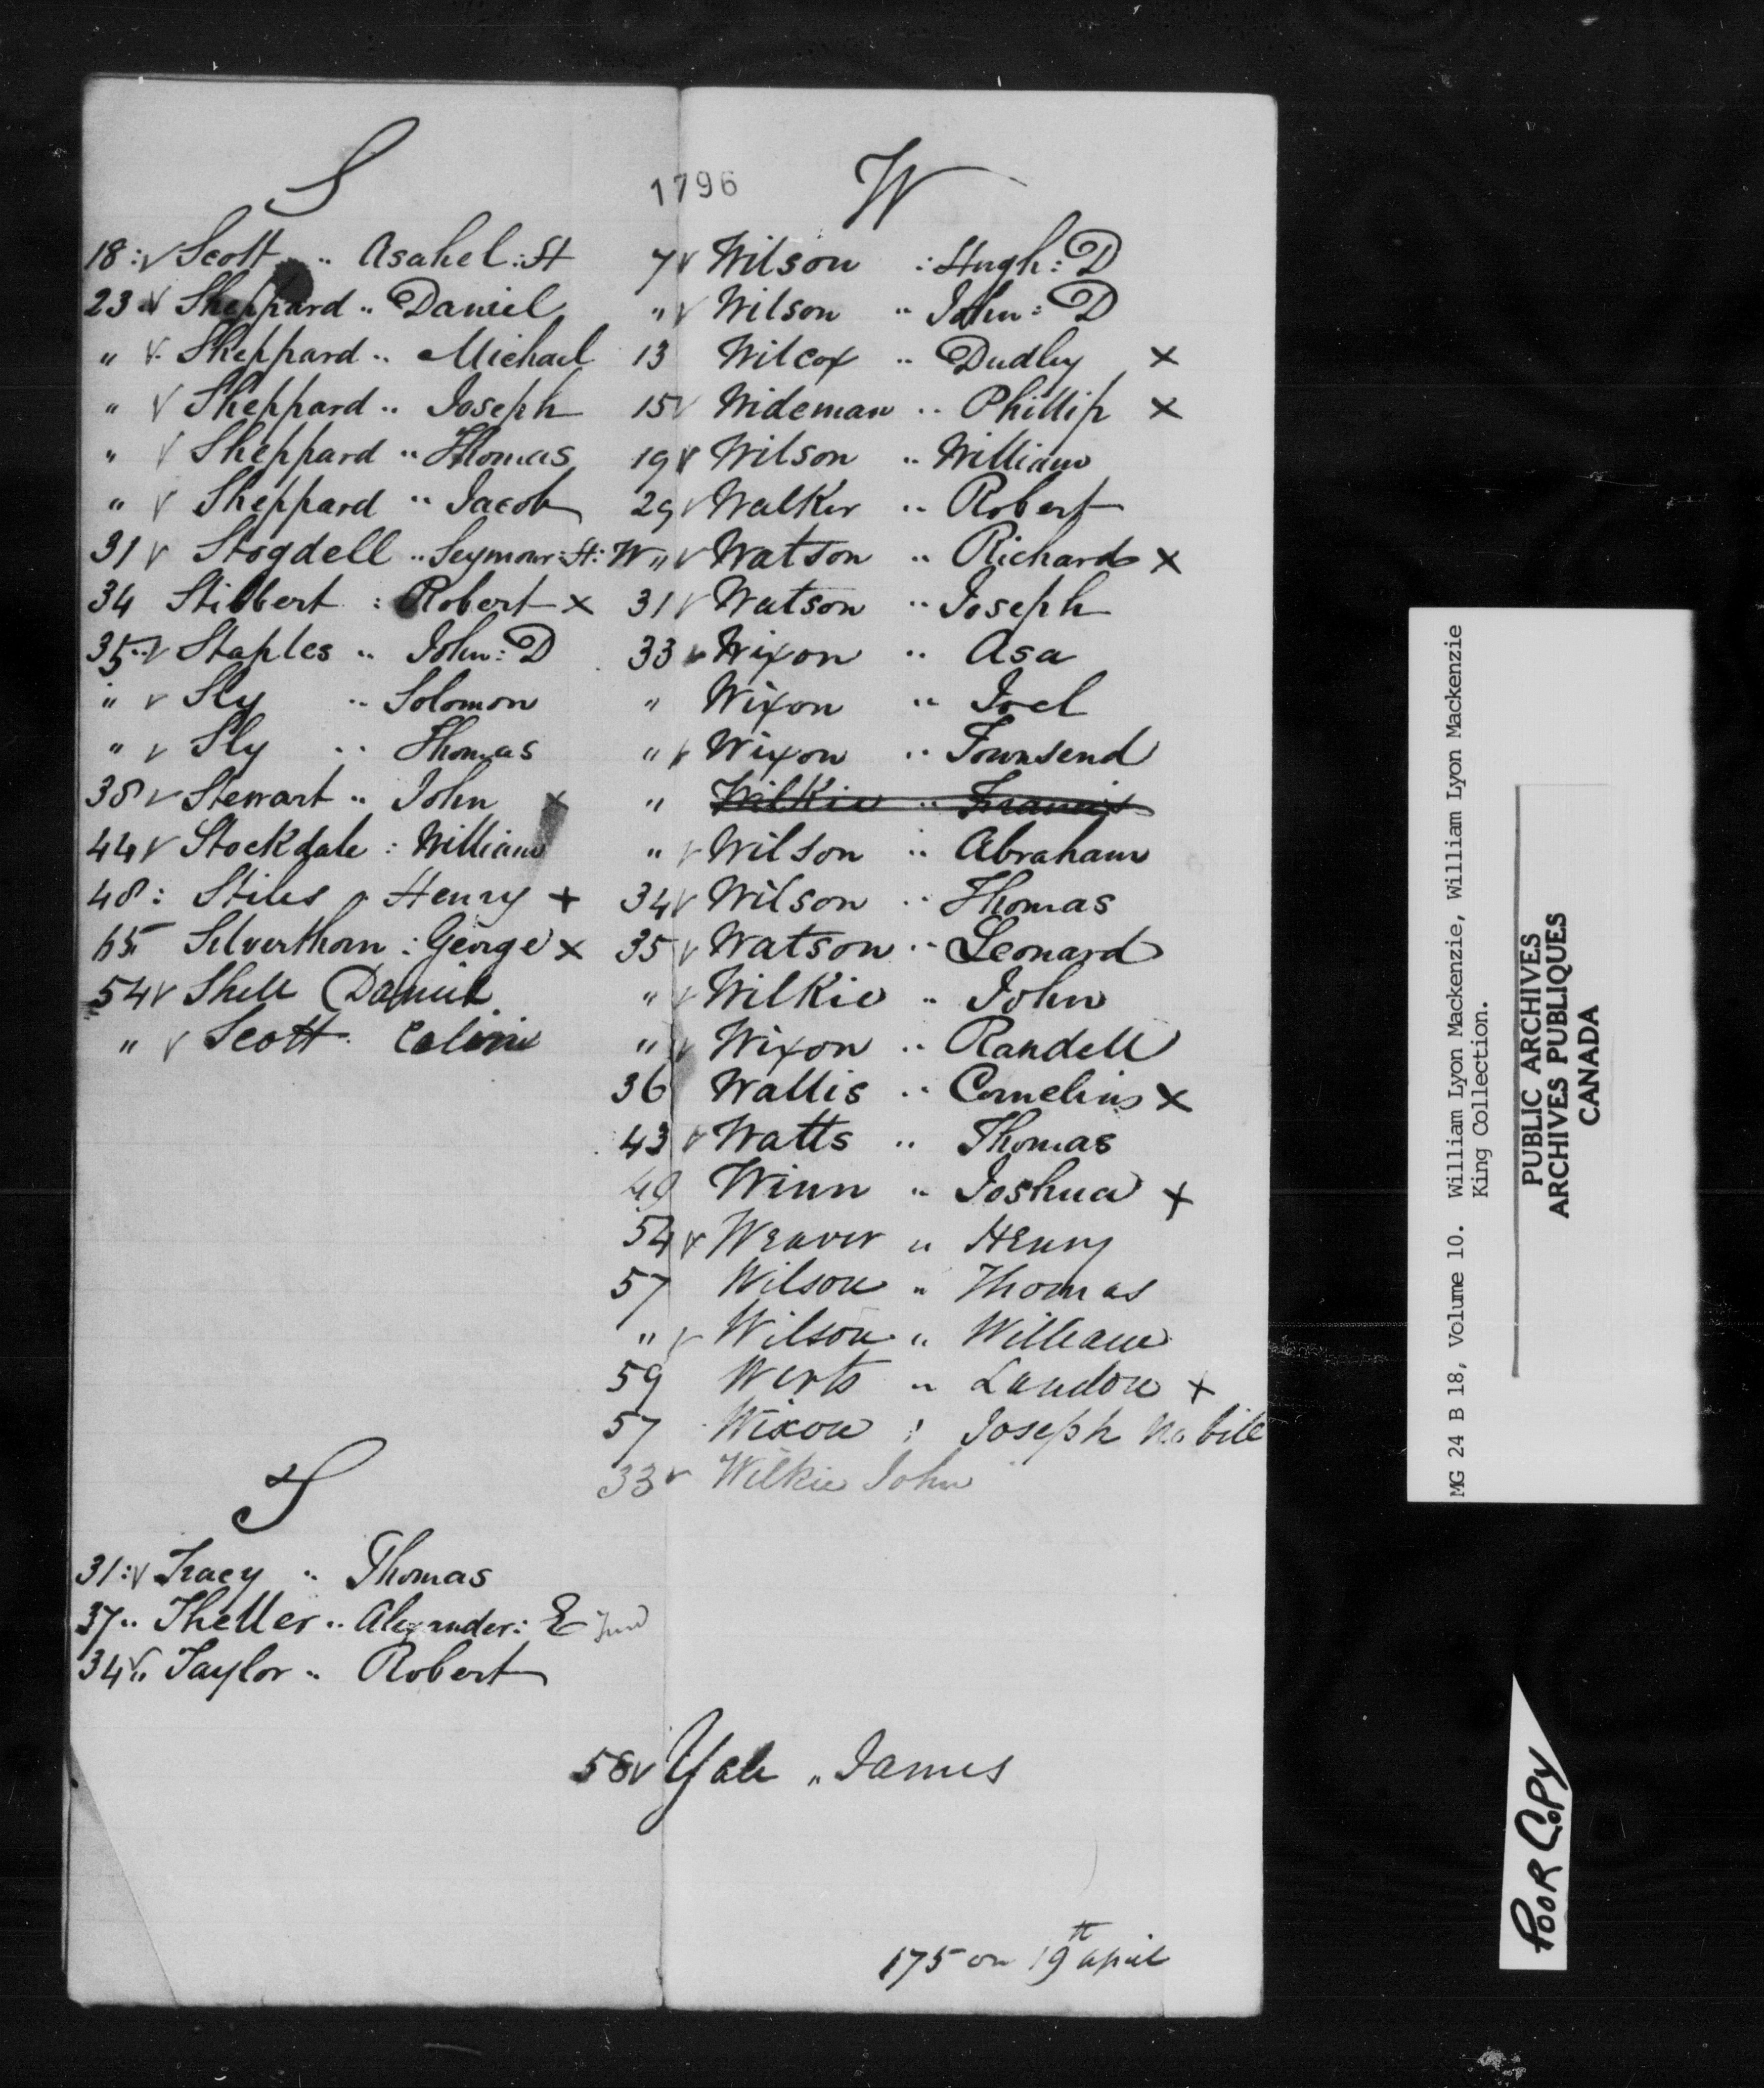 S
18 : v Scott .. Asahel : St
23 .. v Sheppard .. Daniel
" v Sheppard .. Michael
" v Sheppard .. Joseph
" v Sheppard .. Thomas
" v Sheppard .. Jacob
31 v Stogdell .. Seymour : St : W
34 Stibbert : Robert x
35 .. v Staples .. John : D
" v Sly .. Solomon
" v Sly .. Thomas
38 v Stewart .. John x
44 v Stockdale : William
48 : Stiles " Henry +
65 Silverthorn : George x
54 v Shell Daniel
" v Scott
T
31 : v Tracy .. Thomas
37 .. Theller .. Alexander : E
34 v .. Taylor .. Robert
1796
W
7 v Wilson : Hugh : D
" v Wilson .. John : D
13 Wilcox .. Dudley x
15 v Wideman .. Phillip x
19 v Wilson .. William
29 v Walker .. Robert
" v Watson .. Richard x
31 v Watson .. Joseph
33 v Wixon .. Asa
" Wixon .. Joel
" v Wixon .. Townsend
" Wilkie .. Francis
" v Wilson .. Abraham
34 v Wilson .. Thomas
35 v Watson .. Leonard
" v Wilkie .. John
" v Wixon .. Randell
36 Wallis .. Cornelius x
43 v Watts .. Thomas
49 Winn .. Joshua x
54 v Weaver .. Henry
57 Wilson .. Thomas
" v Wilson .. William
59 Werts .. Landon x
57 Wixon : Joseph No bill
33 v Wilkie John
58 v Yale " James
175 on 19th april
MG 24 B 18, Volume 10. William Lyon Mackenzie, William Lyon Mackenzie
King Collection.
PUBLIC ARCHIVES
ARCHIVES PUBLIQUES
CANADA
POOR COPY